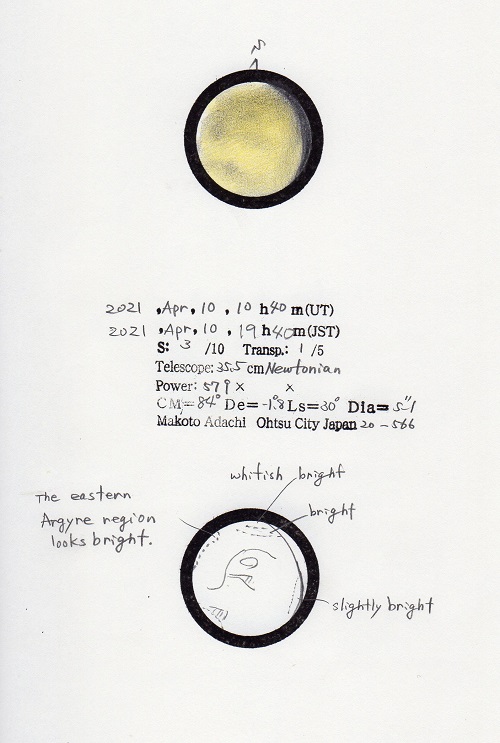 S
2021 , Apr, 10 , 10 h40 m(UT)
2021 , Apr, 10 , 19 h40 m(JST)
S: 3 /10 Transp.: 1 /5
Telescope: 35.5 cm Newtonian
Power: 579 × ×
CM=84° De=-1.°8 Ls=30° Dia=5."1
Makoto Adachi Ohtsu City Japan 20-566
whitish bright
The eastern
Argyre region
looks bright.
bright
slightly bright